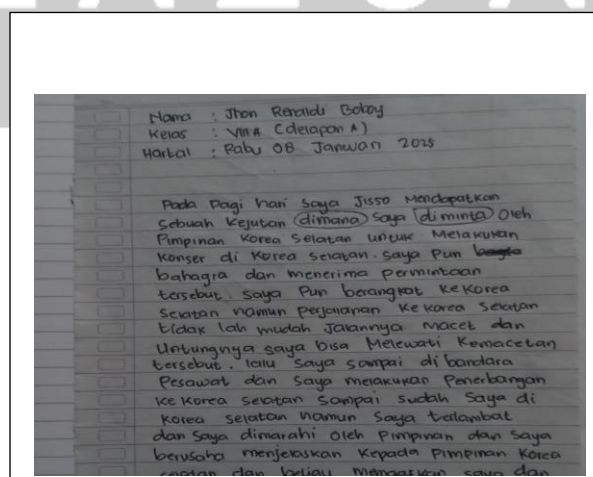 Nama : Jhon Renaldi Boboy
Kelas : VIII A (delapan A)
Hartal : Rabu 08 Januari 2025
Pada Pagi hari saya Jisso Mendapatkan
Sebuah Kejutan dimana saya diminta Oleh
Pimpinan Korea Selatan untuk Melakukan
Konser di Korea Selatan. saya Pun
bahagia dan menerima permintaan
tersebut. saya Pun berangkat Ke Korea
Selatan namun Perjalanan Ke Korea Selatan
tidak lah mudah Jalannya Macet dan
Untungnya saya bisa Melewati Kemacetan
tersebut. lalu saya sampai di bandara
Pesawat dan saya melakukan Penerbangan
Ke Korea selatan sampai sudah saya di
Korea selatan namun saya talambat
dan saya dimarahi Oleh Pimpinan dan saya
berusaha menjelaskan Kepada Pimpinan Korea
selatan dan beliau saya dan